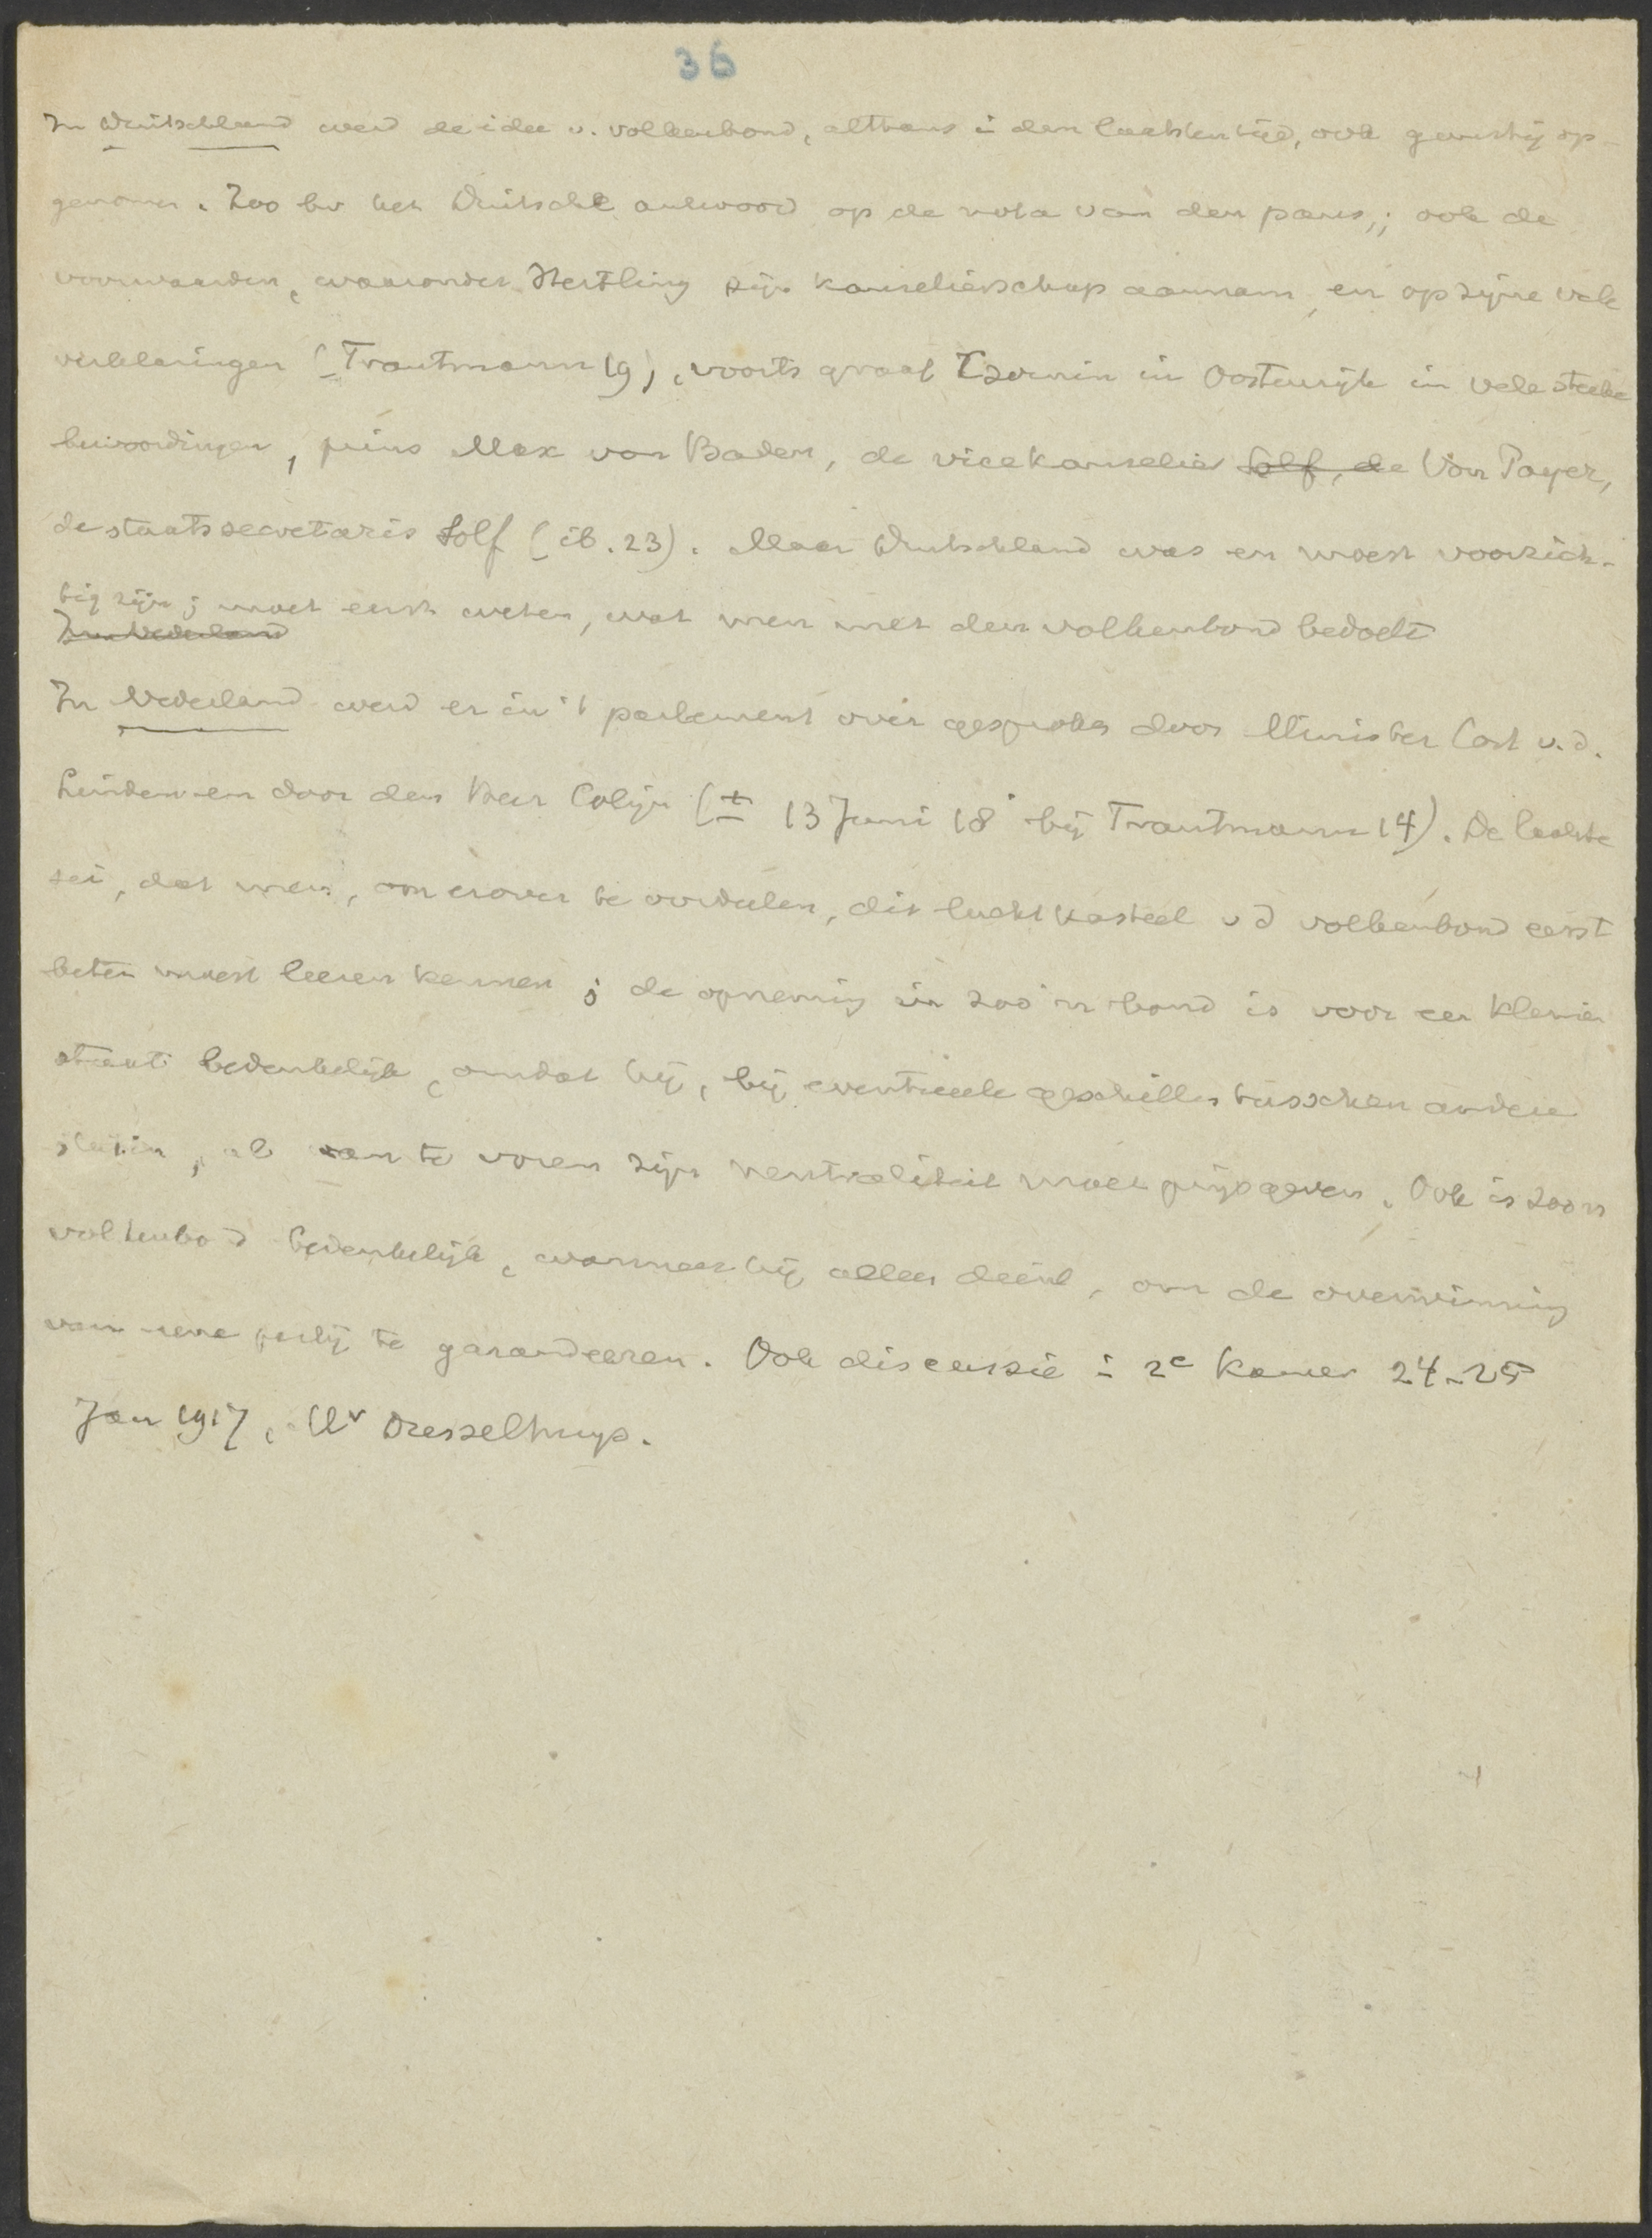 36
In Duitschland werd de idee v. volkenbond, althans in den laatsten tijd, ook gunstig op-
genomen. Zoo bv het Duitsche antwoord op de nota van den paus,; ook de
voorwaarden, waaronder Hertling zijn kanselierschap aannam, en op zijne vele
verklaringen (Trautmann 19), voorts graaf Czernin in Oostenrijk in vele
bewoordingen, prins Max von Baden, de vicekanselier Solf, de Von Payer,
de staatssecretaris Solf (ib. 23). Maar Duitschland was en moest voorzich-
tig zijn; moet eerst weten, wat men met den volkenbond bedoelt
In Nederland
In Nederland werd er in 't parlement over gesproken door Minister Cort v.d.
Linden en door den Heer Colijn (± 13 Juni 18 bij Trautmann 14). De laatste
zei, dat men, om erover te oordeelen, dit luchtkasteel v d volkenbond eerst
beter moest leeren kennen; de opneming in zoo'n bond is voor een kleinen
staat bedenkelijk, omdat hij, bij eventueele geschillen tusschen andere
staten, al van te voren zijn neutraliteit moet prijsgeven. Ook is zoo'n
volkenbond bedenkelijk, wanneer hij alleen dient, om de overwinning
van eene partij te garandeeren. Ook discussie in 2e Kamer 24-25
Jan 1917, Mr Dresselhuys.